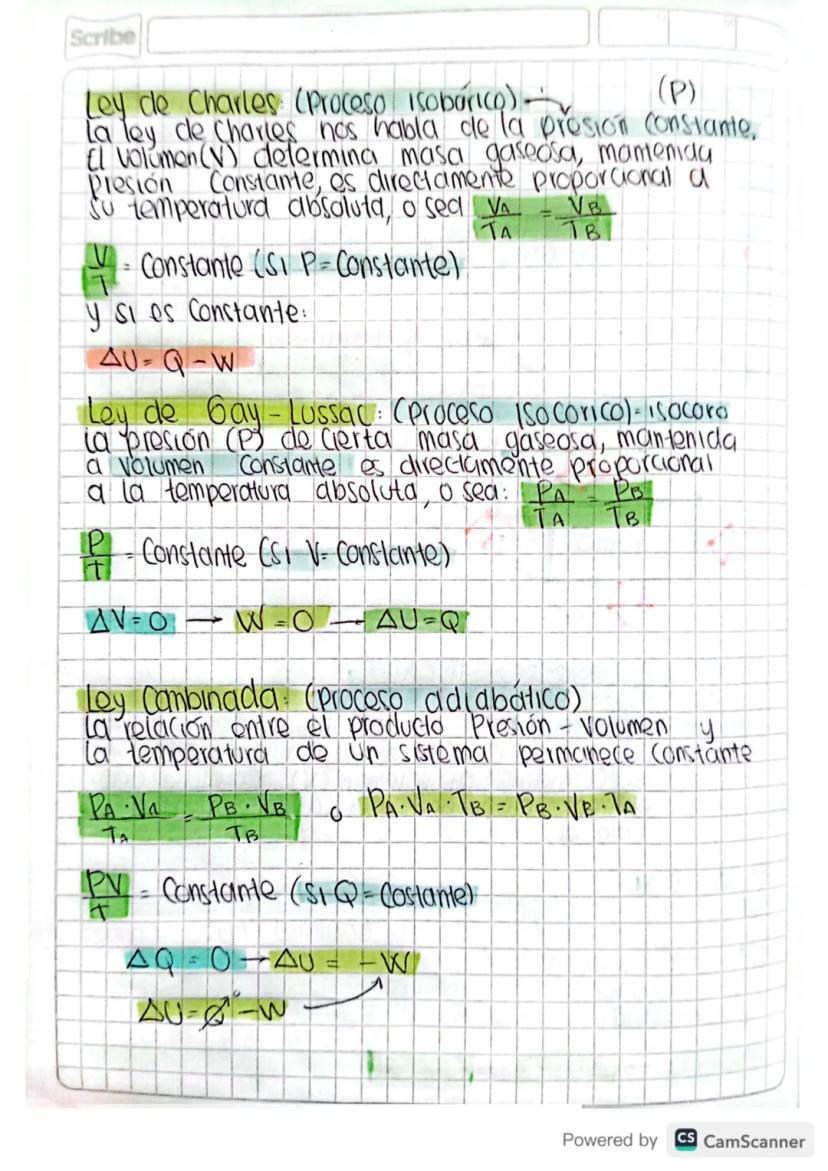 Scribe
Ley de Charles: (Proceso isobárico) (P)
La ley de Charles nos habla de la presión constante.
El volumen(V) determina masa gaseosa, mantenida
presión constante, es directamente proporcional a
su temperatura absoluta, o sea VA/TA = VB/TB
V/T = Constante (si P=Constante)
y si es constante:
ΔU= Q - W
Ley de Gay-Lussac: (proceso isocorico)=isocoro
La presión (P) de cierta masa gaseosa, mantenida
a volumen constante es directamente proporcional
a la temperatura absoluta, o sea: PA/TA = PB/TB
P/T = Constante (si V= Constante)
ΔV=0 → W=0 → ΔU=Q
Ley Combinada: (proceso adiabático)
La relación entre el producto Presión-Volumen y
la temperatura de un sistema permanece constante
PA·VA/TA = PB·VB/TB o PA·VA·TB = PB·VB·TA
PV/T = Constante (si Q=Costante)
ΔQ=0 → ΔU = -W
ΔU= Q⁰ -W
Powered by CS CamScanner